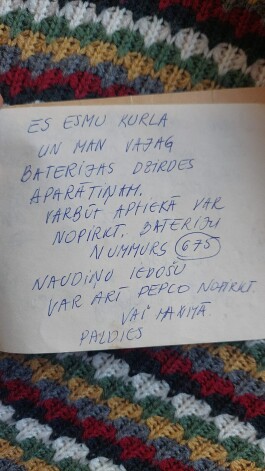 ES ESMU KURLA
UN MAN VAJAG
BATERIJAS DZIRDES
APARĀTIŅAM.
VARBŪT APTIEKĀ VAR
NOPIRKT. BATERIJU
NUMMURS 675
NAUDIŅU IEDOŠU
VAR ARĪ DEPLO NOPIRKT
VAI MANIMĀ
PALDIES